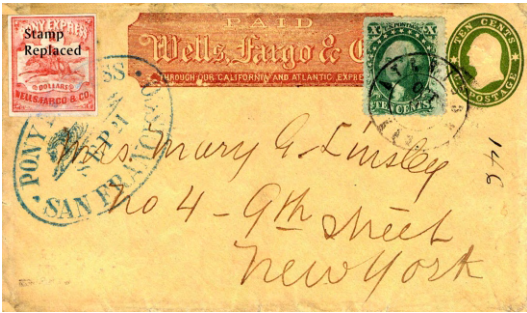 PONY EXPRESS
Stamp
Replaced
DOLLARS
WELLS. FARGO & CO.
PAID
Wells, Fargo & C
THROUGH OUR CALIFORNIA AND ATLANTIC EXPRE
X X
TEN CENTS
TEN CENTS
US POSTAGE
PONY EXPRESS
SEP 21
SAN FRANCISCO
146
Mrs Mary G Linsley
No 4 - 9th street
New York